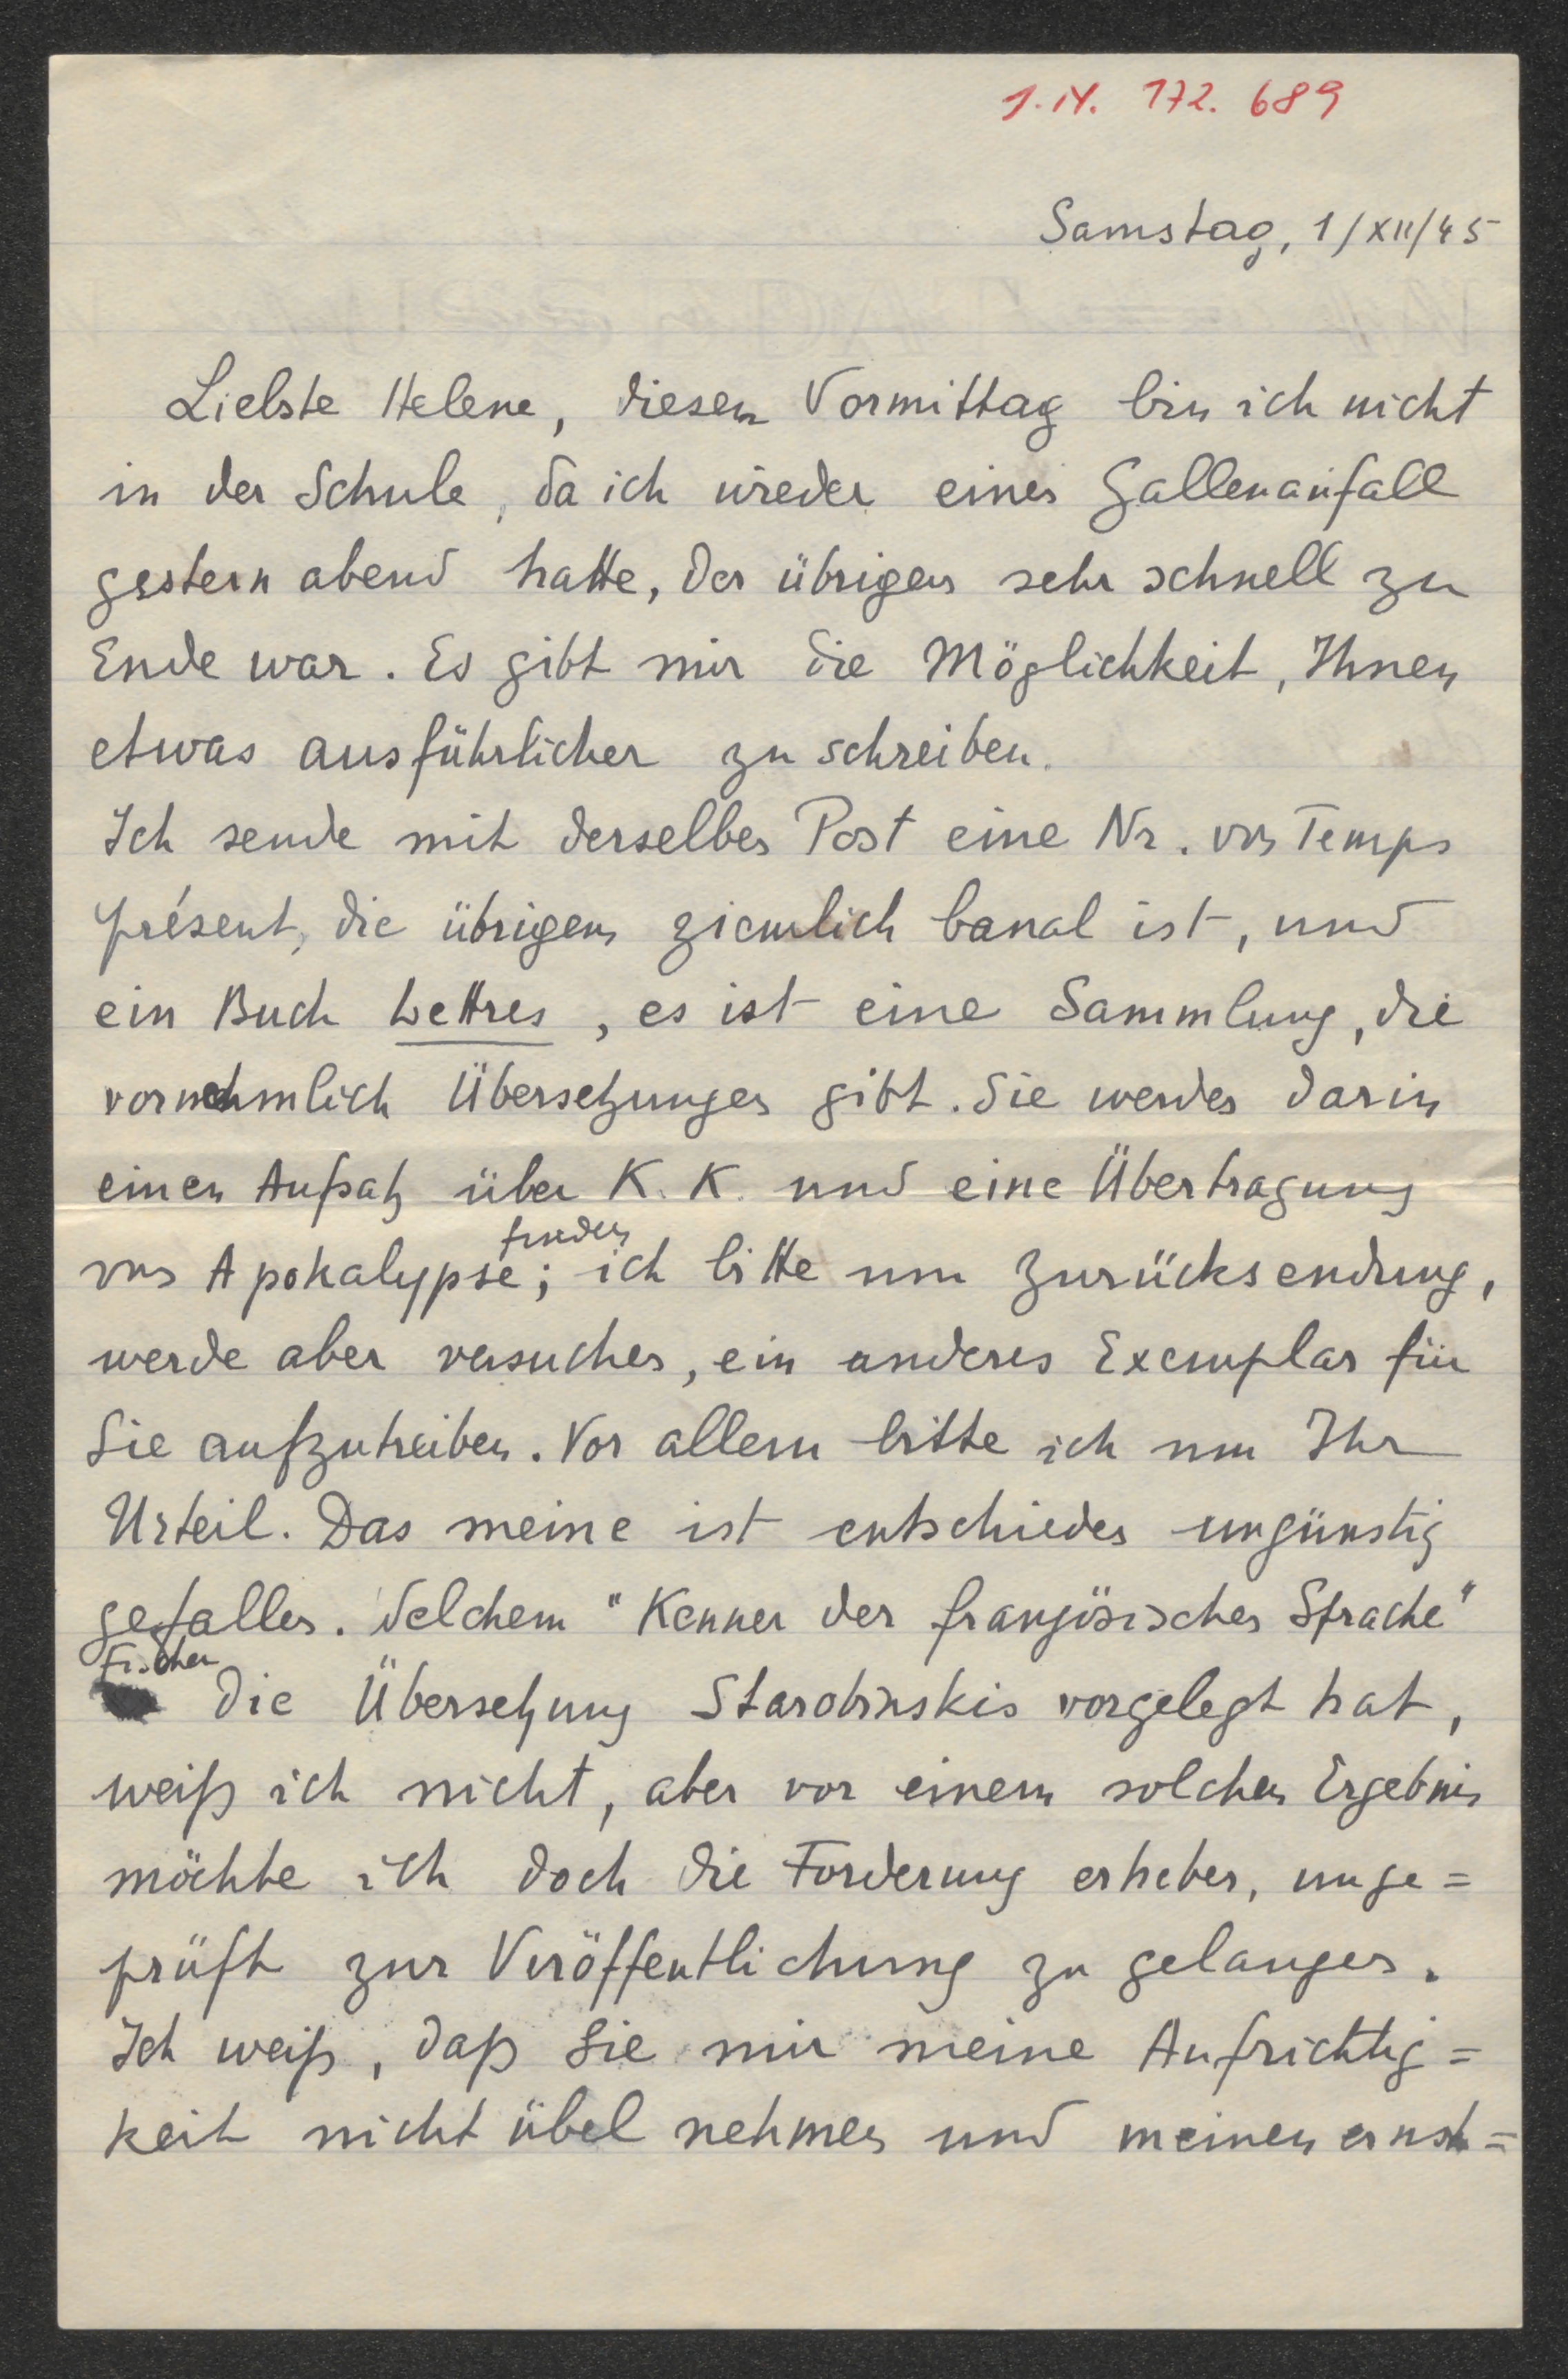 1. IX. 172. 689
Samstag, 1/XII/45
Liebste Helene, diesen Vormittag bin ich nicht
in der Schule, da ich wieder einen Gallenanfall
gestern abend hatte, der übrigens sehr schnell zu
Ende war. Es gibt mir die Möglichkeit, Ihnen
etwas ausführlicher zu schreiben.
Ich sende mit derselben Post eine Nr. von Temps
présent, die übrigens ziemlich banal ist, und
ein Buch Lettres, es ist eine Sammlung, die
vornehmlich Übersetzungen gibt. Sie werden darin
einen Aufsatz über K. K. und eine Übertragung
finden
von Apokalypse; ich bitte um Zurücksendung,
werde aber versuchen, ein anderes Exemplar für
Sie aufzutreiben. Vor allem bitte ich um Ihr
Urteil. Das meine ist entschieden ungünstig
gefallen. Welchem "Kenner der französischen Sprache"
Fischer
die Übersetzung Starobinskis vorgelegt hat,
weiß ich nicht, aber vor einem solchen Ergebnis
möchte ich doch die Forderung erheben, unge=
prüft zur Veröffentlichung zu gelangen.
Ich weiß, daß Sie mir meine Aufrichtig=
keit nicht übel nehmen und meinen ernst=